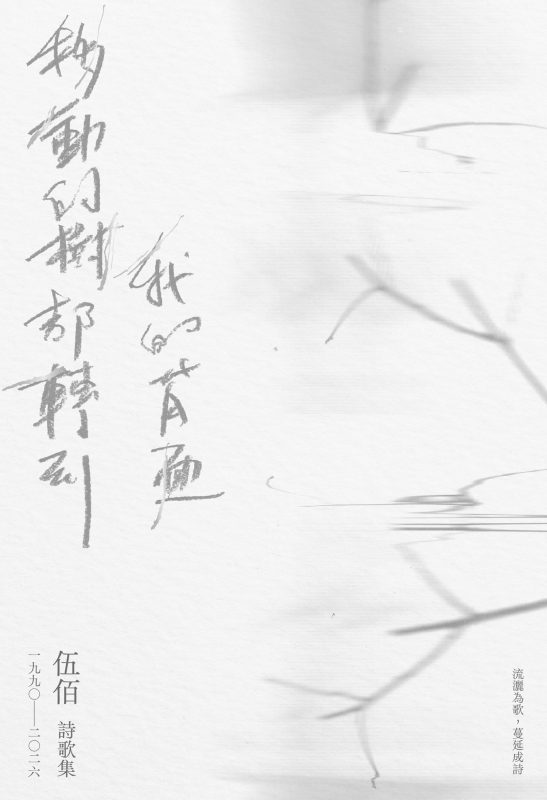 移動的樹都轉到
我的背面
伍佰 詩歌集
一九九〇——二〇二六
流灑為歌,蔓延成詩